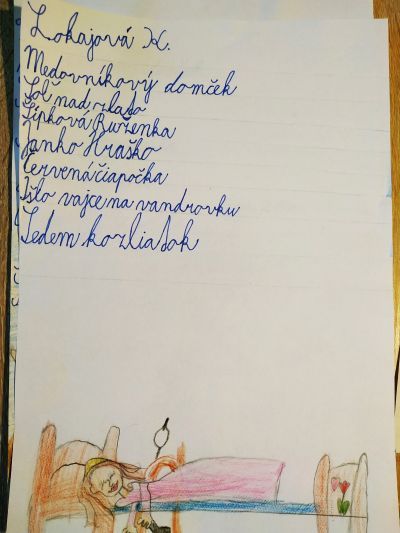 Lokajová K.
Medovníkový domček
Soľ nad zlato
Šípková Ruženka
Janko Hraško
Červená čiapočka
Išlo vajce na vandrovku
Sedem kozliatok